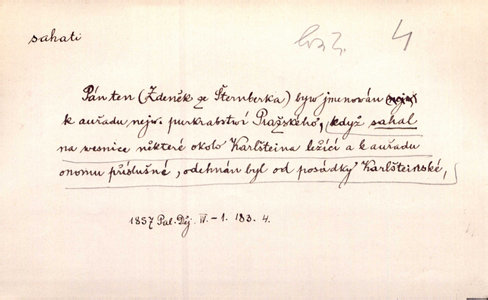 sahati
4
Pán ten (Zdeněk ze Šternberka) byw jmenowán
k auřadu nejw. purkrabství Pražského, když sahal
na wesnice některé okolo Karlšteina ležící a k auřadu
onomu příslušné, odehnán byl od posádky Karlšteinské,
1857 Pal. Děj. IV.-1. 183. 4.